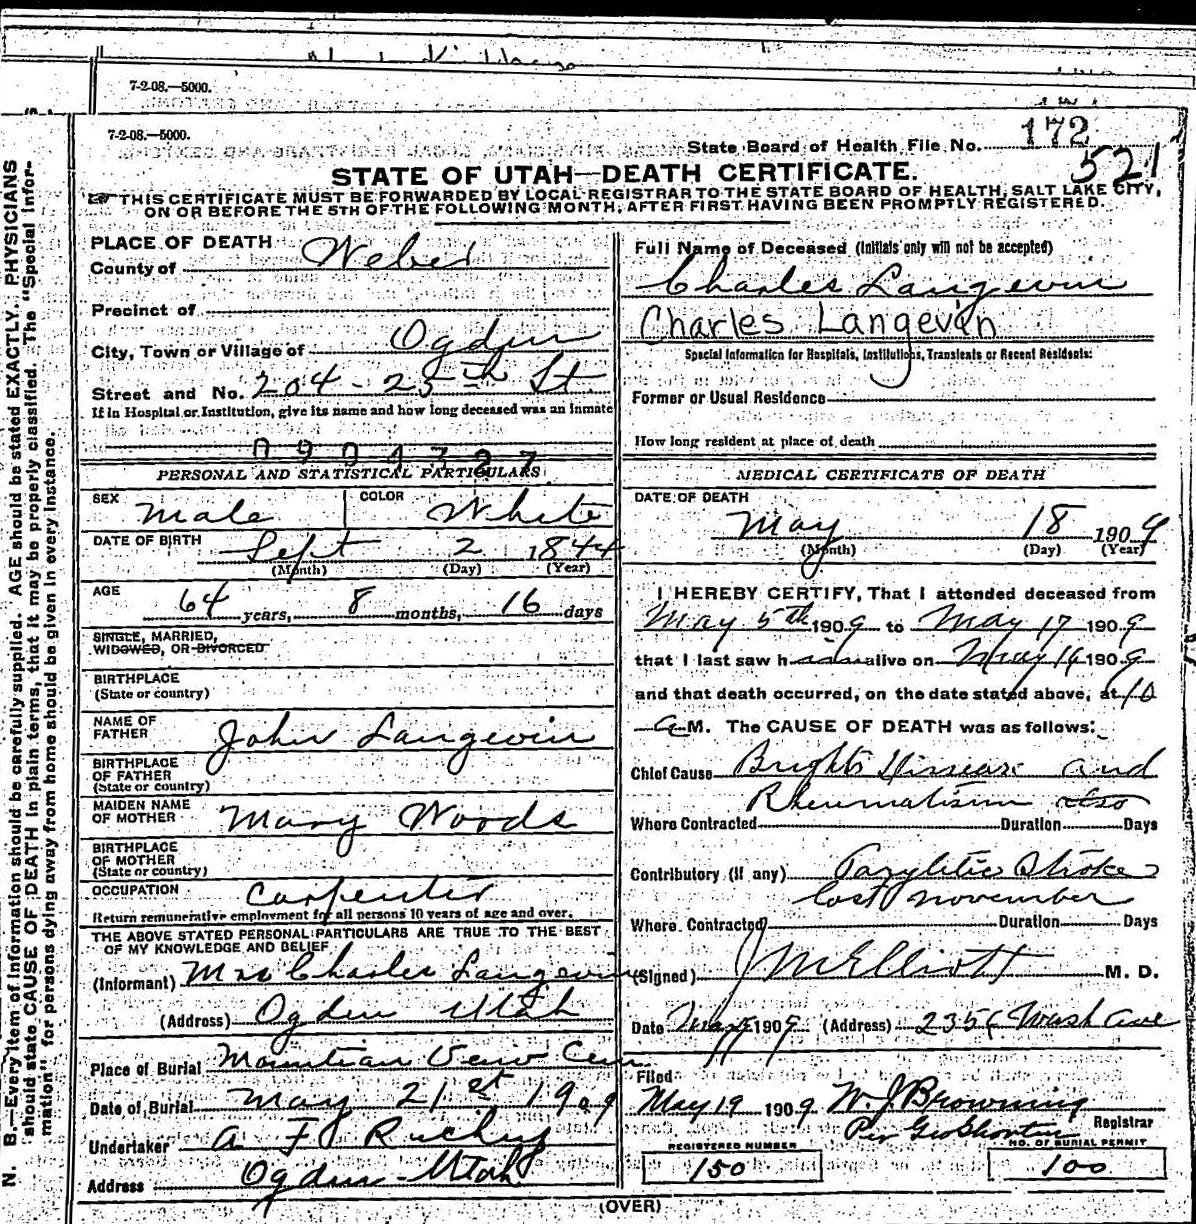 7-2-08.—5000.
7-2-08.—5000.
State Board of Health File No. 172
521
STATE OF UTAH—DEATH CERTIFICATE.
THIS CERTIFICATE MUST BE FORWARDED BY LOCAL REGISTRAR TO THE STATE BOARD OF HEALTH, SALT LAKE CITY,
ON OR BEFORE THE 5TH OF THE FOLLOWING MONTH, AFTER FIRST HAVING BEEN PROMPTLY REGISTERED.
N. B.—Every item of information should be carefully supplied. AGE should be stated EXACTLY. PHYSICIANS
should state CAUSE OF DEATH in plain terms, that it may be properly classified. The "Special Infor-
mation" for persons dying away from home should be given in every instance.
PLACE OF DEATH
County of Weber
Precinct of
City, Town or Village of Ogden
Street and No. 204 - 25th St.
If in Hospital or Institution, give its name and how long deceased was an inmate
0901327
PERSONAL AND STATISTICAL PARTICULARS
SEX Male COLOR White
DATE OF BIRTH Sept 2 1844
(Month) (Day) (Year)
AGE
64 years, 8 months, 16 days
SINGLE, MARRIED,
WIDOWED, OR DIVORCED
BIRTHPLACE
(State or country)
NAME OF
FATHER John Langevin
BIRTHPLACE
OF FATHER
(State or country)
MAIDEN NAME
OF MOTHER Mary Woods
BIRTHPLACE
OF MOTHER
(State or country)
OCCUPATION Carpenter
Return remunerative employment for all persons 10 years of age and over.
THE ABOVE STATED PERSONAL PARTICULARS ARE TRUE TO THE BEST
OF MY KNOWLEDGE AND BELIEF
(Informant) Mrs Charles Langevin
(Address) Ogden Utah
Place of Burial Mountian Veiw Cem.
Date of Burial May 21st 1909
Undertaker A F
Address Ogden - Utah
Full Name of Deceased (Initials only will not be accepted)
Charles Langevin
Charles Langevin
Special Information for Hospitals, Institutions, Transients or Recent Residents:
Former or Usual Residence
How long resident at place of death
MEDICAL CERTIFICATE OF DEATH
DATE OF DEATH
May 18 1909
(Month) (Day) (Year)
I HEREBY CERTIFY, That I attended deceased from
May 5th 1909 to May 17 1909
that I last saw h alive on May 16 1909
and that death occurred, on the date stated above, at 10
a M. The CAUSE OF DEATH was as follows:
Chief Cause Brights Disease and
Rheumatism also
Where Contracted Duration Days
Contributory (if any) Parylitic Stroke
last november
Where Contracted Duration Days
(Signed) J M Elliott M. D.
Date May 1909 (Address) Wash Ave
Filed
May 19 1909 W. J. Browning
Registrar
Per
REGISTERED NUMBER NO. OF BURIAL PERMIT
150 100
(OVER)